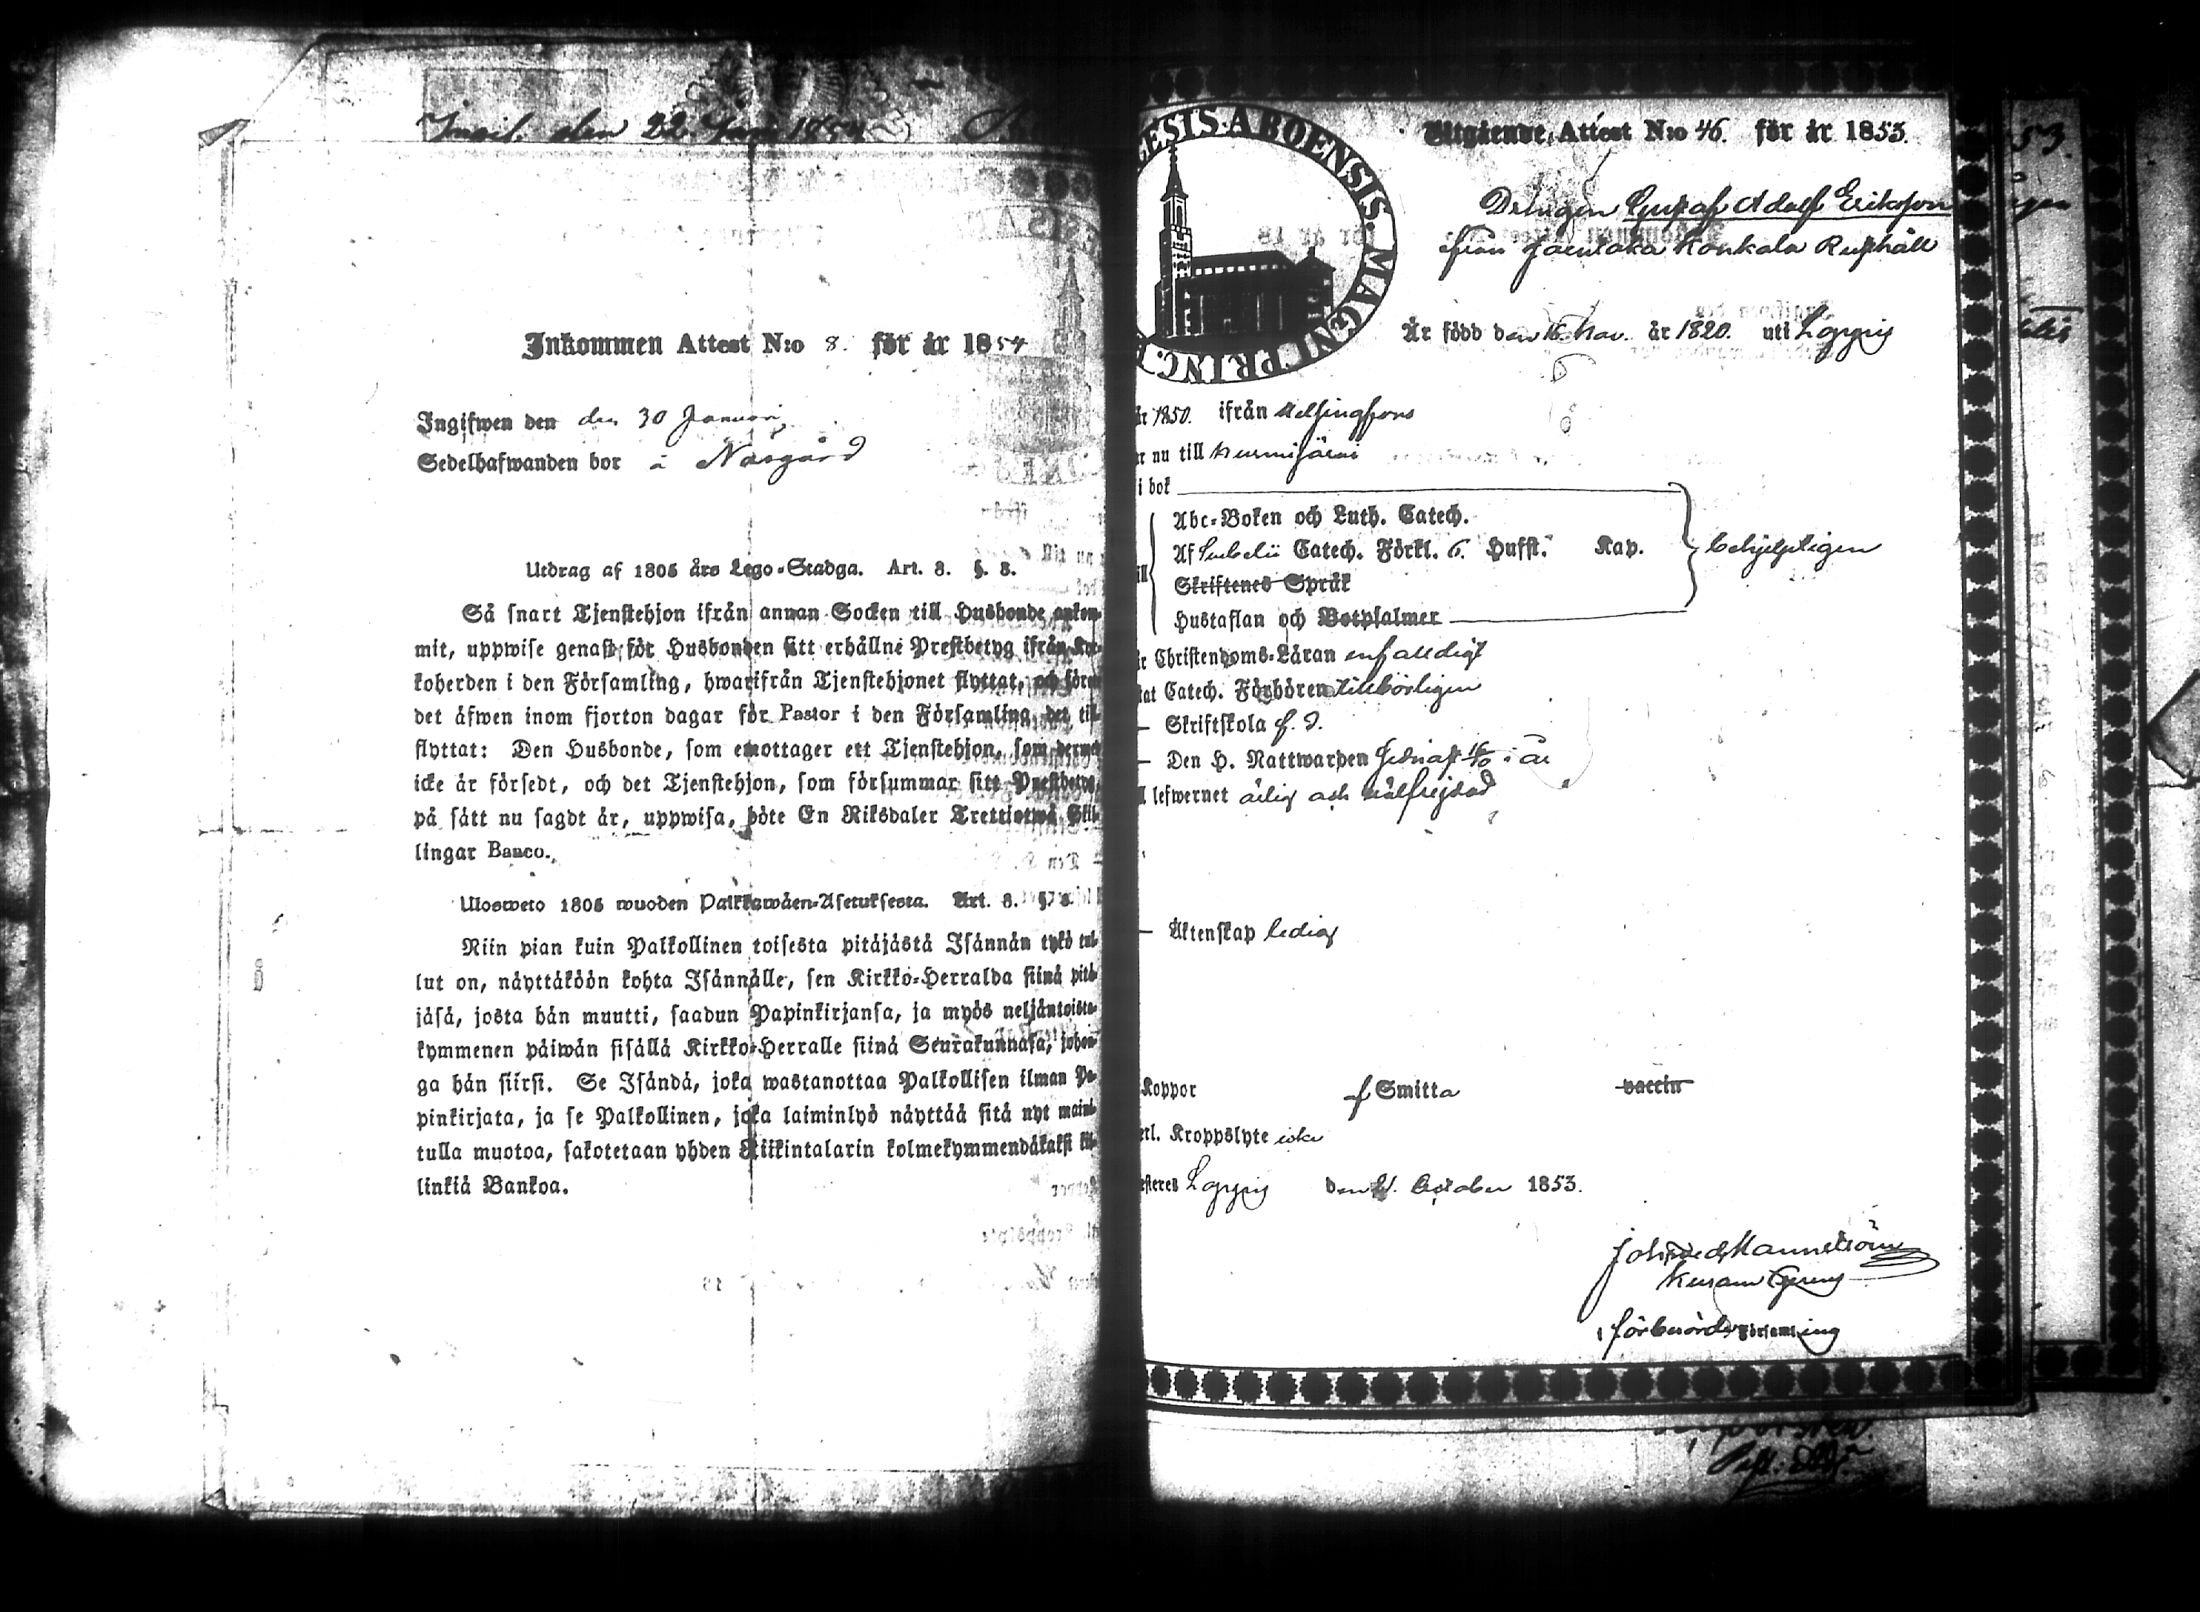 Inneh. den 22 Jan 1854
Inkommen Attest N:o 8. för år 1854
Ingifwen den den 30 Januari
Sedelhafwanden bor å Näsgård
Utdrag af 1805 års Lego-Stadga. Art. 8. §. 8.
Så snart Tjenstehjon ifrån annan Socken till Husbonde ankom-
mit, uppwise genast för Husbonden sitt erhållne Prestbetyg ifrån Kyr-
koherden i den Församling, hwarifrån Tjenstehjonet flyttat, och förete
det äfwen inom fjorton dagar för Pastor i den Församling, det till-
flyttat: Den Husbonde, som emottager ett Tjenstehjon, som dermed
icke är försedt, och det Tjenstehjon, som försummar sitt Prestbetyg,
på sätt nu sagdt är, uppwisa, böte En Riksdaler Trettiotwå Skil-
lingar Banco.
Ulosweto 1805 wuoden Palkkawäen-Asetuksesta. Art. 8. §. 8.
Niin pian kuin Palkollinen toisesta pitäjästä Isännän tykö tul-
lut on, näyttäköön kohta Isännälle, sen Kirkko-Herralda siinä pitä-
jäsä, josta hän muutti, saadun Papinkirjansa, ja myös neljäntoista-
kymmenen päiwän sisällä Kirkko-Herralle siinä Seurakunnasa, johon-
ga hän siirsi. Se Isändä, joka wastanottaa Palkollisen ilman Pa-
pinkirjata, ja se Palkollinen, joka laiminlyö näyttää sitä nyt maini-
tulla muotoa, sakotetaan yhden Riikintalarin kolmekymmendäkaksi kil-
linkiä Bankoa.
ESIS. ABOENSIS. MAGNI PRINC.
Utgående Attest N:o 46. för år 1853.
Drängen Gustaf Adolf Eriksson
från Joentaka Konkala Rusthåll
Är född den 16 Nov. år 1820. uti Loppis
år 1850. ifrån Helsingfors
nu till Nurmijärvi
i bok
Abc-Boken och Luth. Catech.
Af Sebelii Catech. Förkl. 6. Husst. Kap. behjelpligen
Skriftenes Språk
Hustaflan och Botpsalmer
Christendoms-Läran enfaldigt
Catech. Förhören tillbörligen
Skriftskola f. d.
Den H. Nattwarden sednast 16/10 i år
lefwernet ärlig och välfrejdad
Äktenskap ledig
Koppor f Smitta vaccin
Kroppslyte icke
Loppis den 21. October 1853.
i förberörde Församling